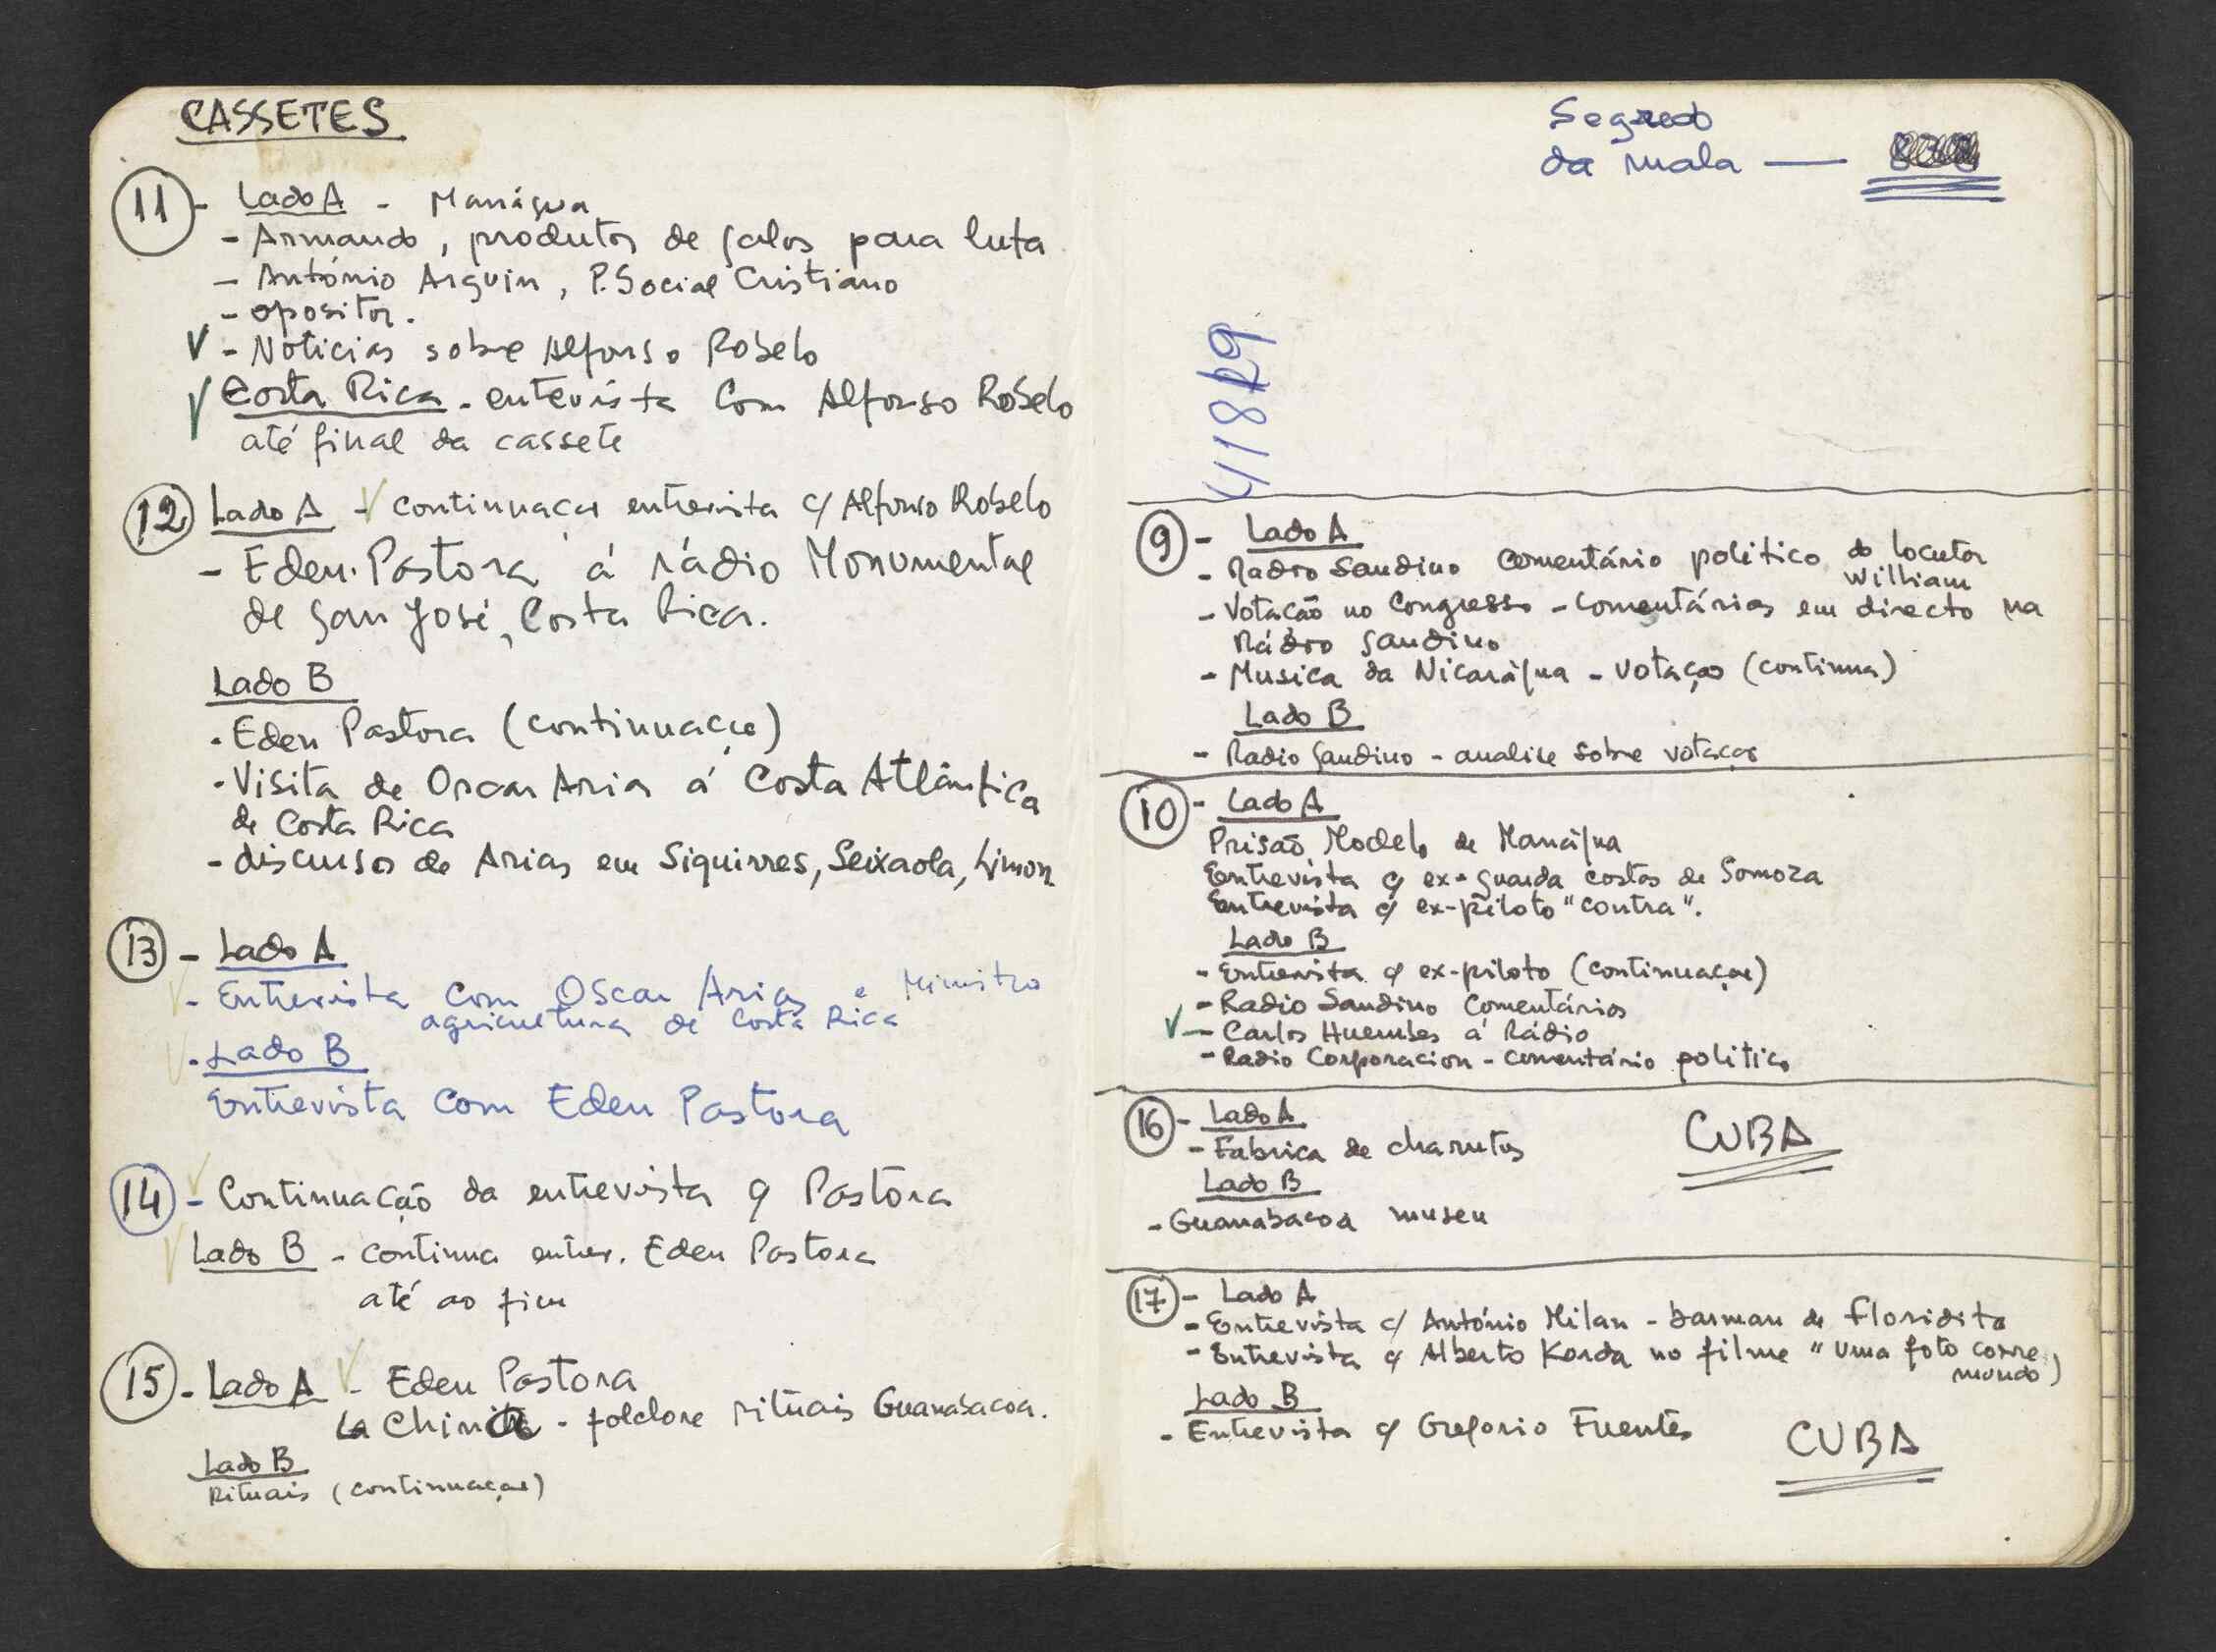 CASSETES
11 - Lado A - Manágua
- Armando, produtor de galos para luta
- António Arguin, P. Social Cristiano
- opositor.
- Noticias sobre Alfonso Robelo
Costa Rica - entevista com Alfonso Robelo
até final da cassete
12 Lado A - continuação entrevista c/ Alfonso Robelo
- Eden Pastora á rádio Monumental
de San José, Costa Rica.
Lado B
- Eden Pastora (continuação)
- Visita de Oscar Aria á Costa Atlântica
de Costa Rica
- discursos de Arias em Siquirres, Seixaola, Limon
13 - Lado A
- Entrevista com Oscar Arias e Ministro
agricultura de Costa Rica
- Lado B
Entrevista com Eden Pastora
14 - Continuação da entrevista c/ Pastora
Lado B - continua entrev. Eden Pastora
até ao fim
15 - Lado A - Eden Pastora
La China - folclore rituais Guanabacoa.
Lado B
Rituais (continuação)
Segredo
da mala —
9 - Lado A
- Radio Sandino comentário politico do locutor
William
- Votação no Congresso - comentários em directo na
Rádio Sandino
- Musica da Nicarágua - votação (continua)
Lado B
- Radio Sandino - analise sobre votação
10 - Lado A
Prisão Modelo de Manágua
Entrevista c/ ex-guarda costas de Somoza
Entrevista c/ ex-piloto "contra".
Lado B
- Entrevista c/ ex-piloto (continuação)
- Radio Sandino comentários
- Carlos Huembes á Rádio
- Radio Corporacion - comentário politico
16 - Lado A
- Fabrica de charutos
CUBA
Lado B
- Guanabacoa museu
17 - Lado A
- Entrevista c/ António Milan - barman de Floridita
- Entrevista c/ Alberto Korda no filme "uma foto corre
mundo)
Lado B
- Entrevista c/ Gregorio Fuentes
CUBA